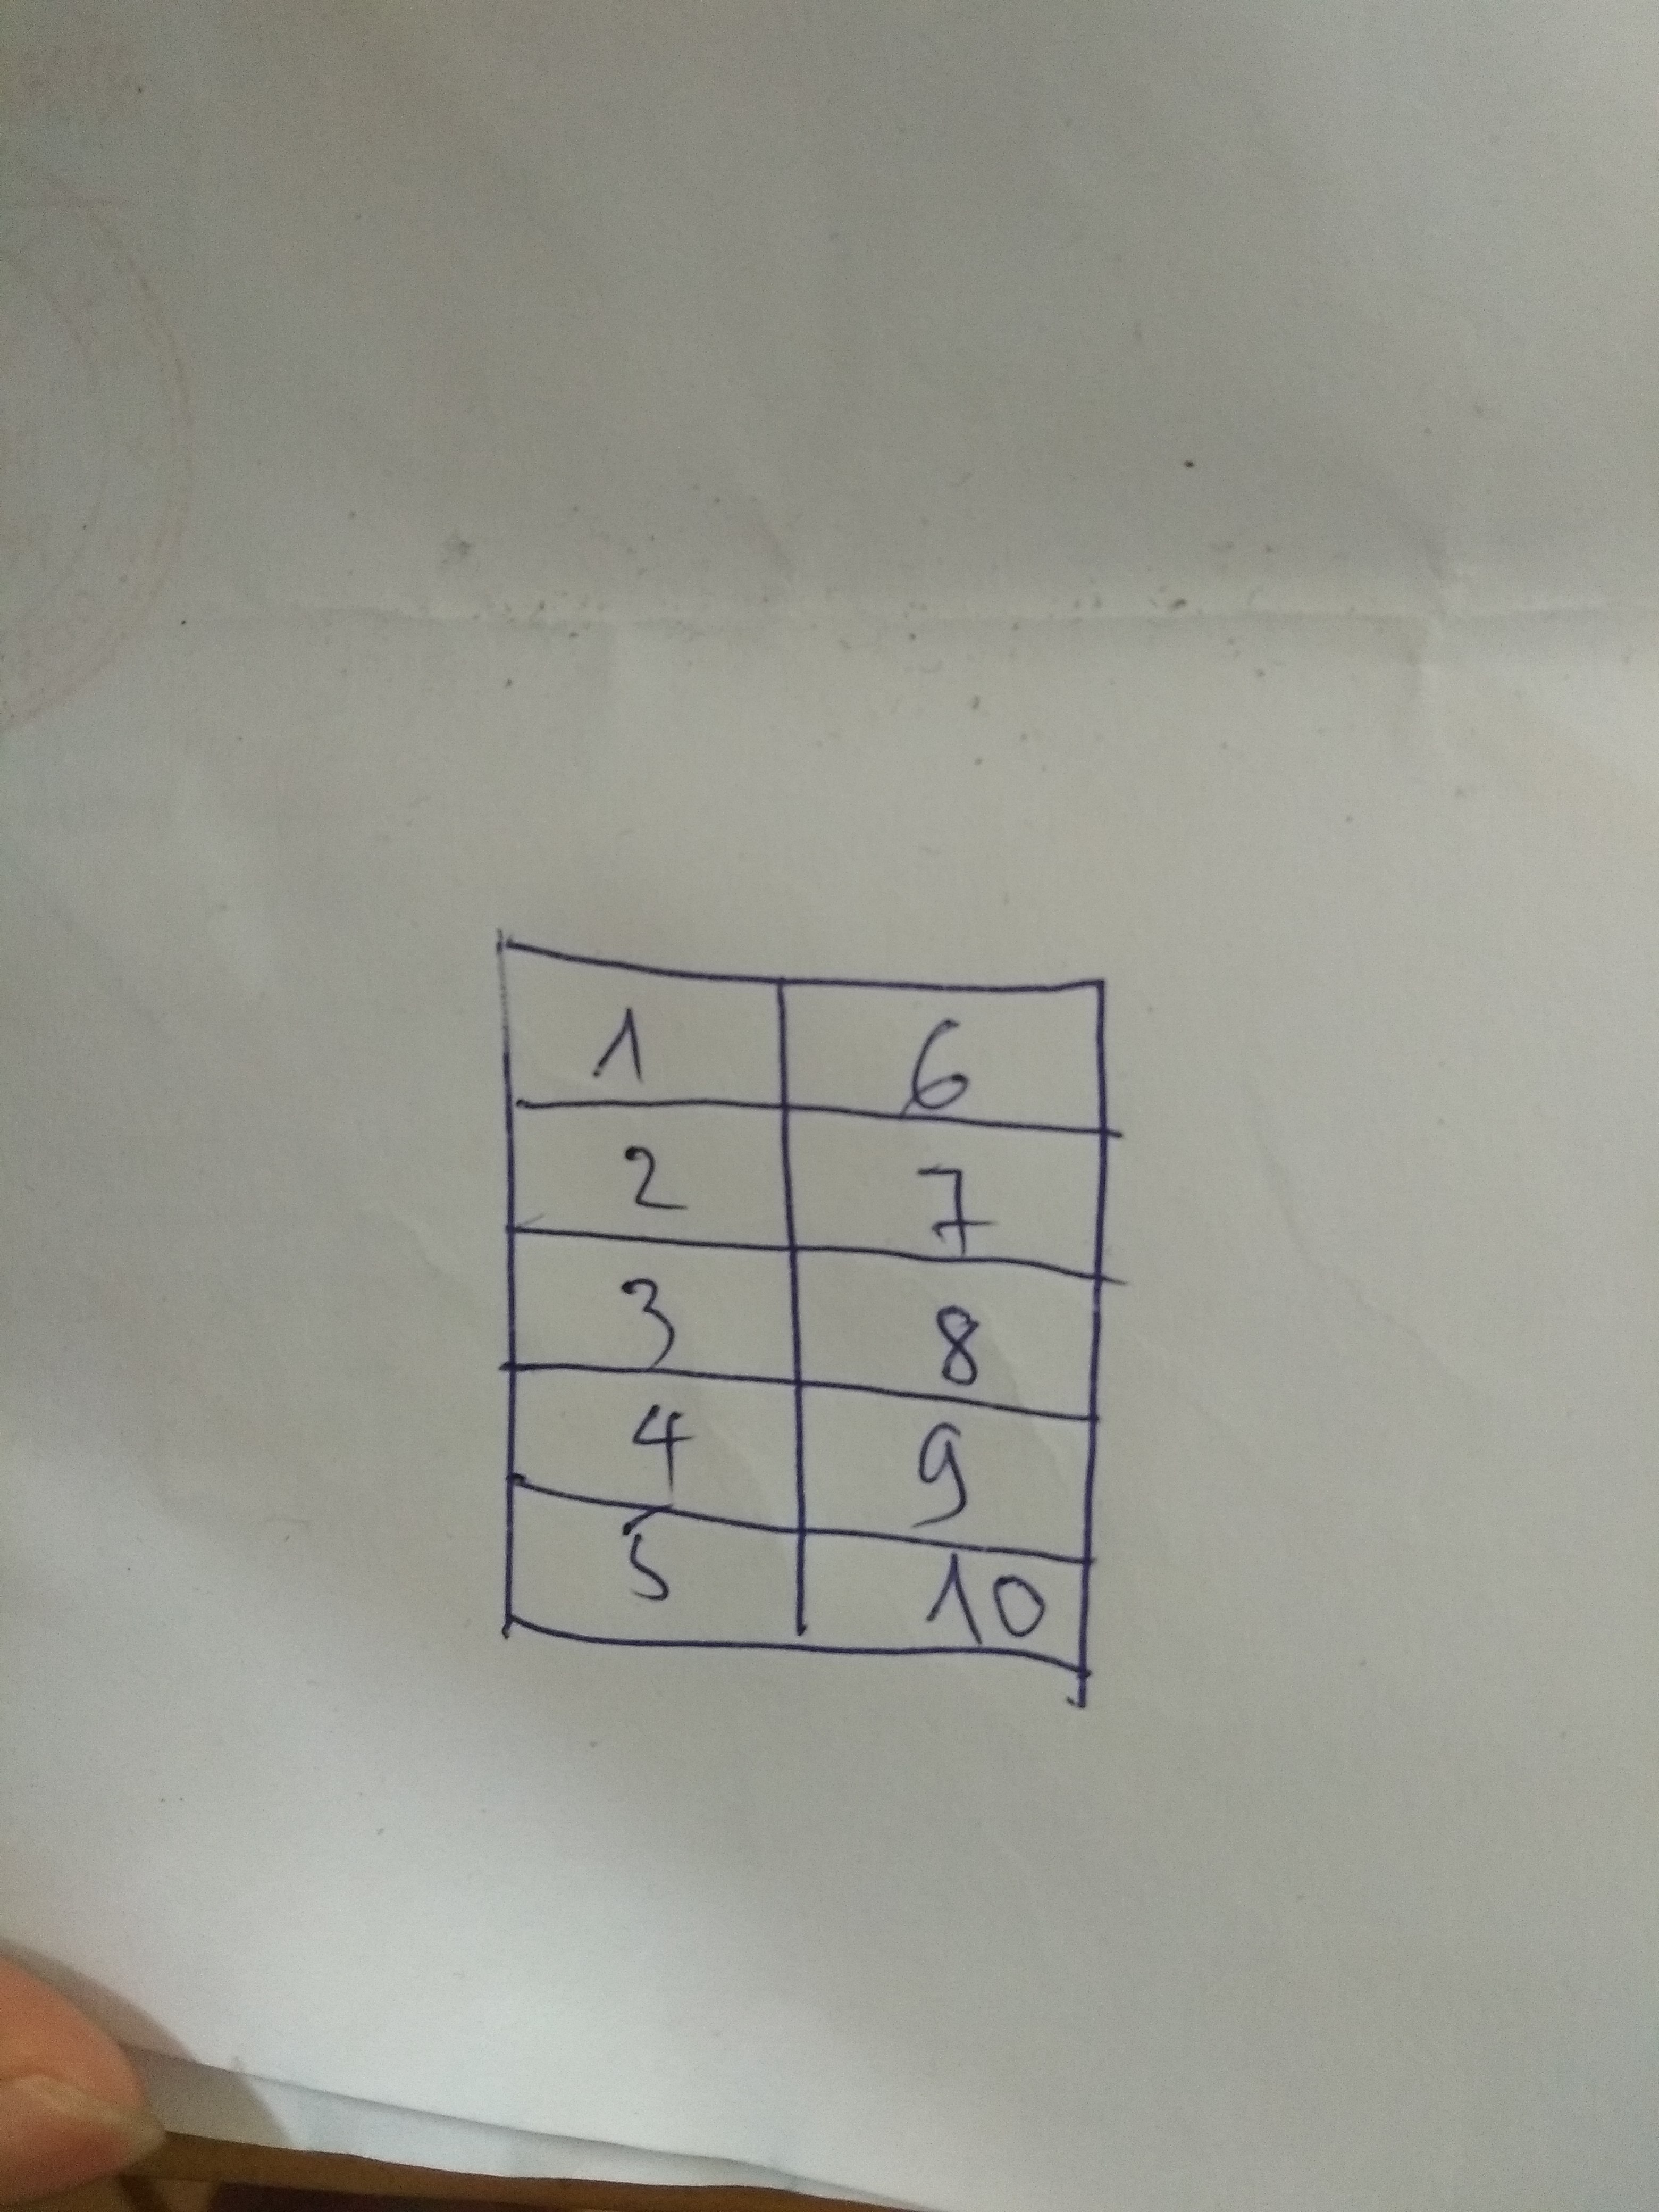 1 6
2 7
3 8
4 9
5 10